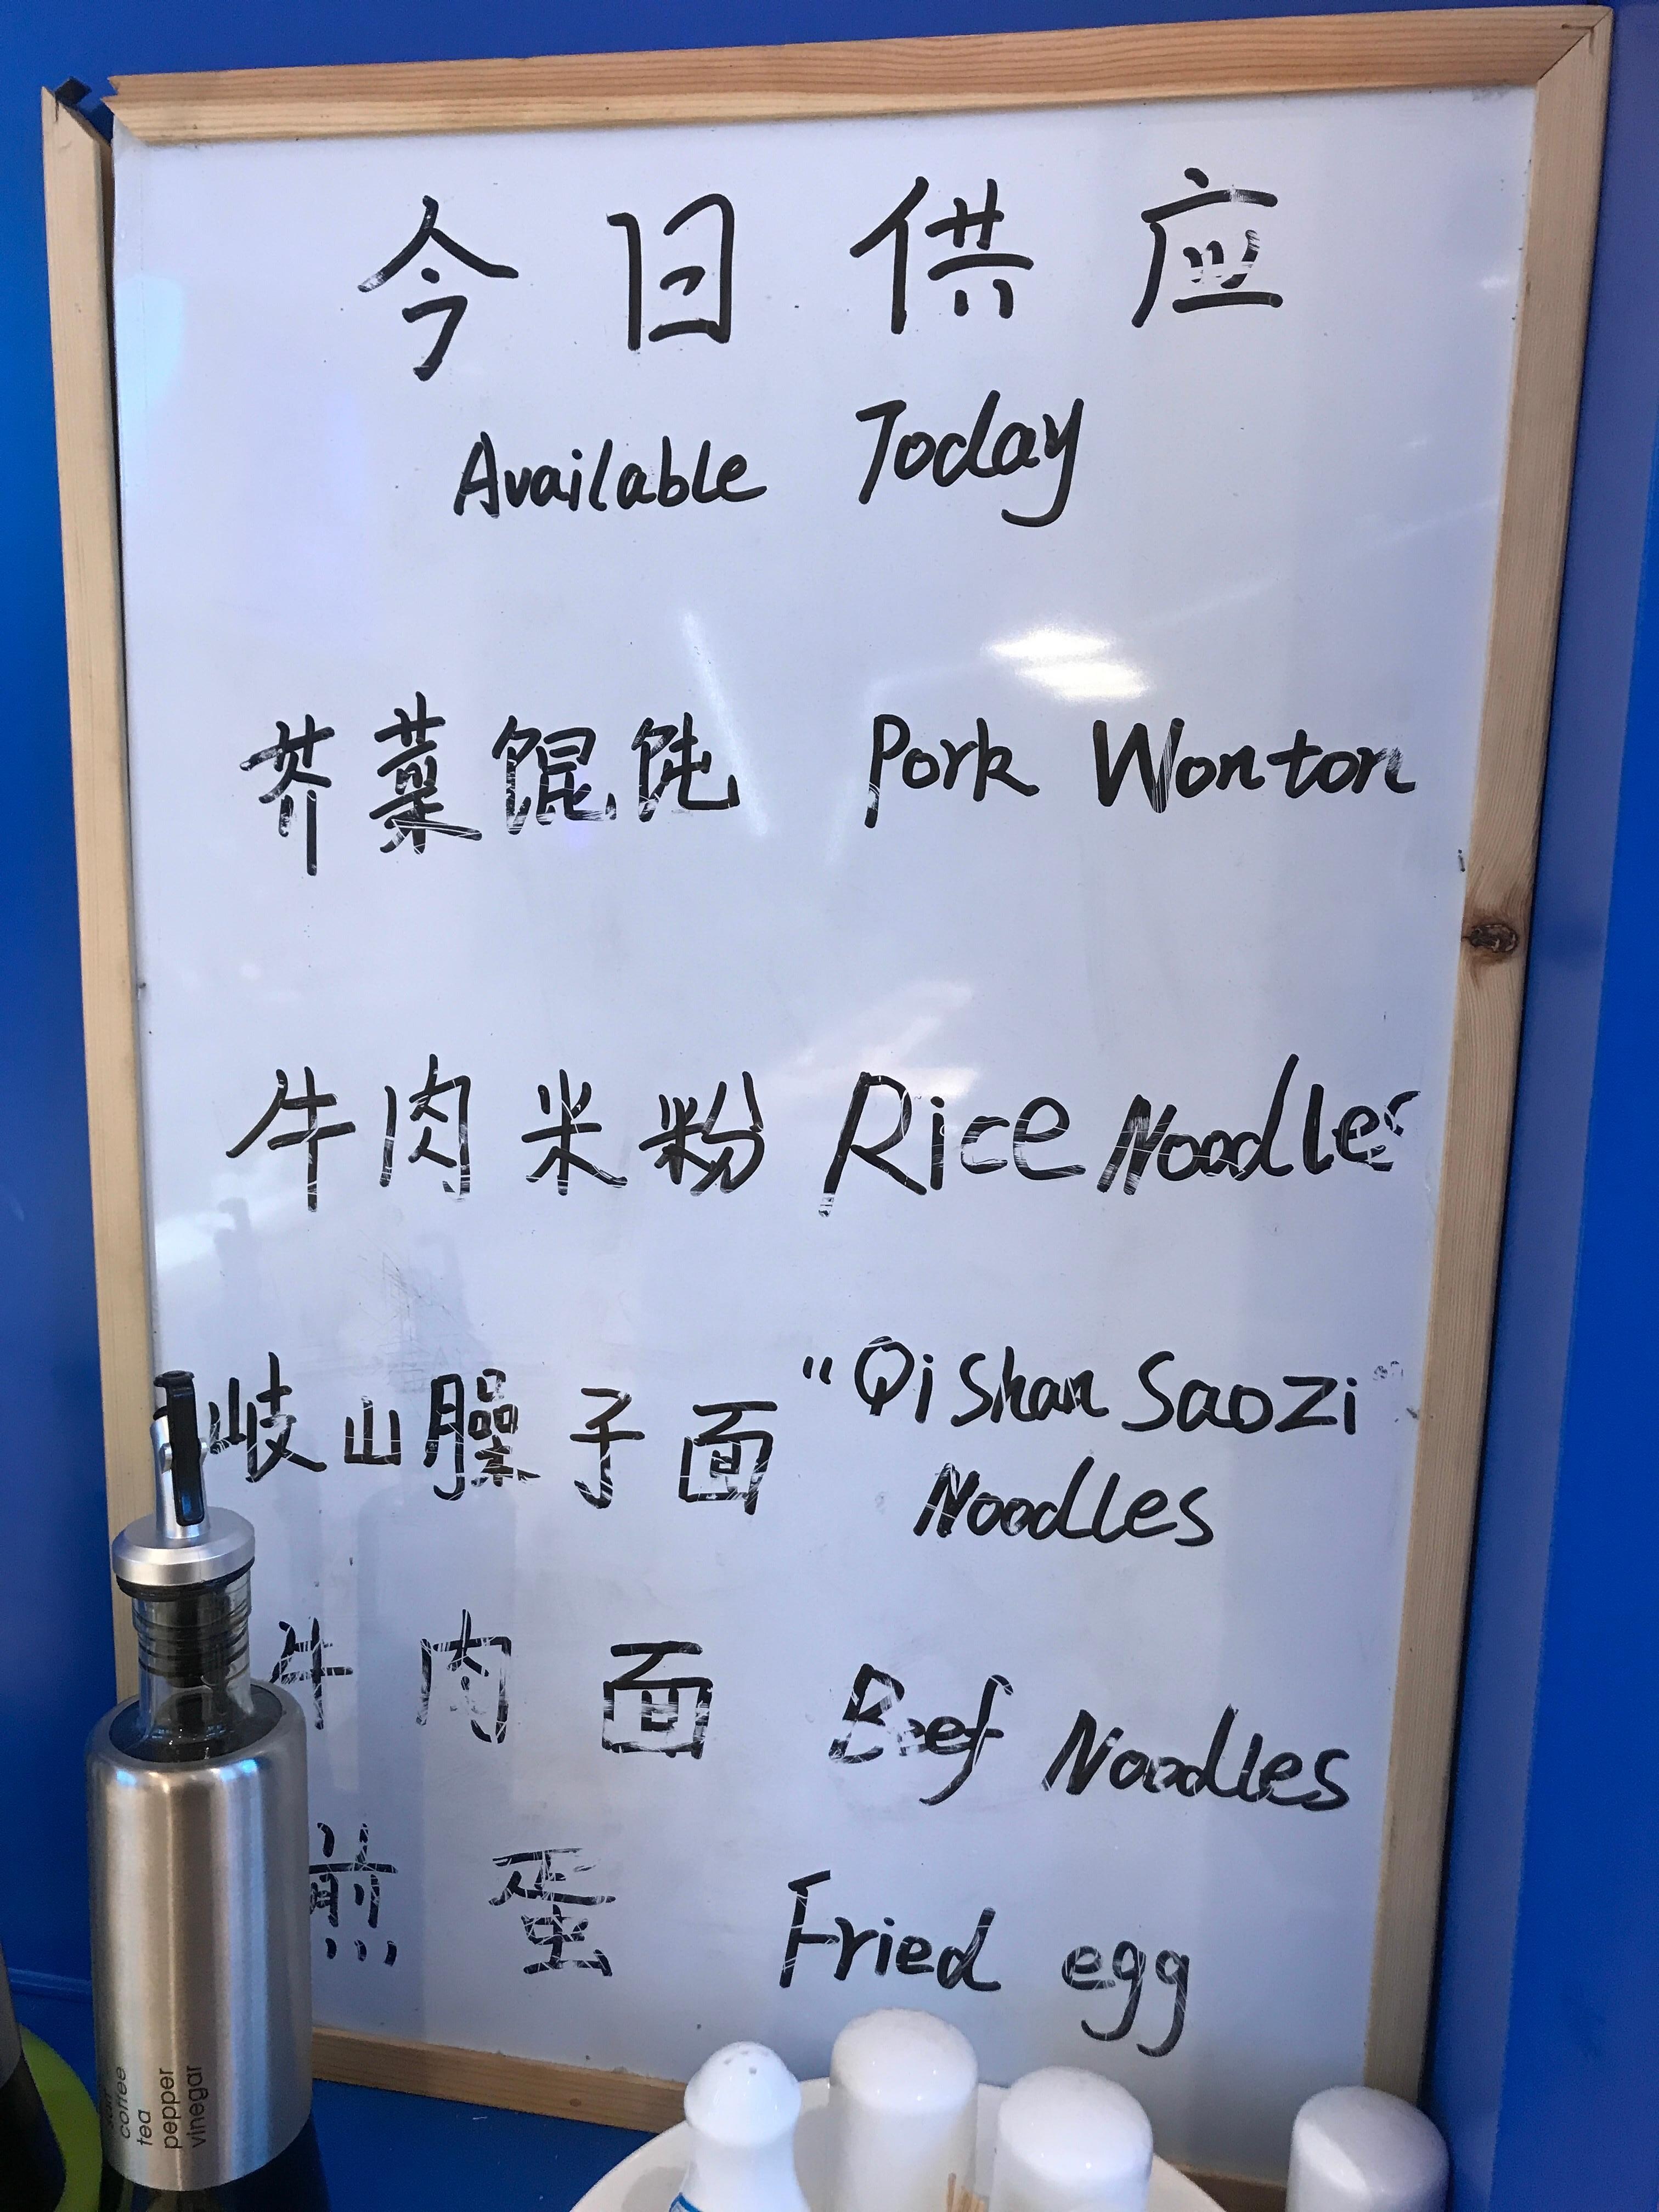 今日供应
Available Today
芥菜馄饨 Pork Wonton
牛肉米粉 Rice Noodles
岐山臊子面 "Qi Shan Saozi"
Noodles
牛肉面 Beef Noodles
煎蛋 Fried egg
coffee
tea
pepper
vinegar